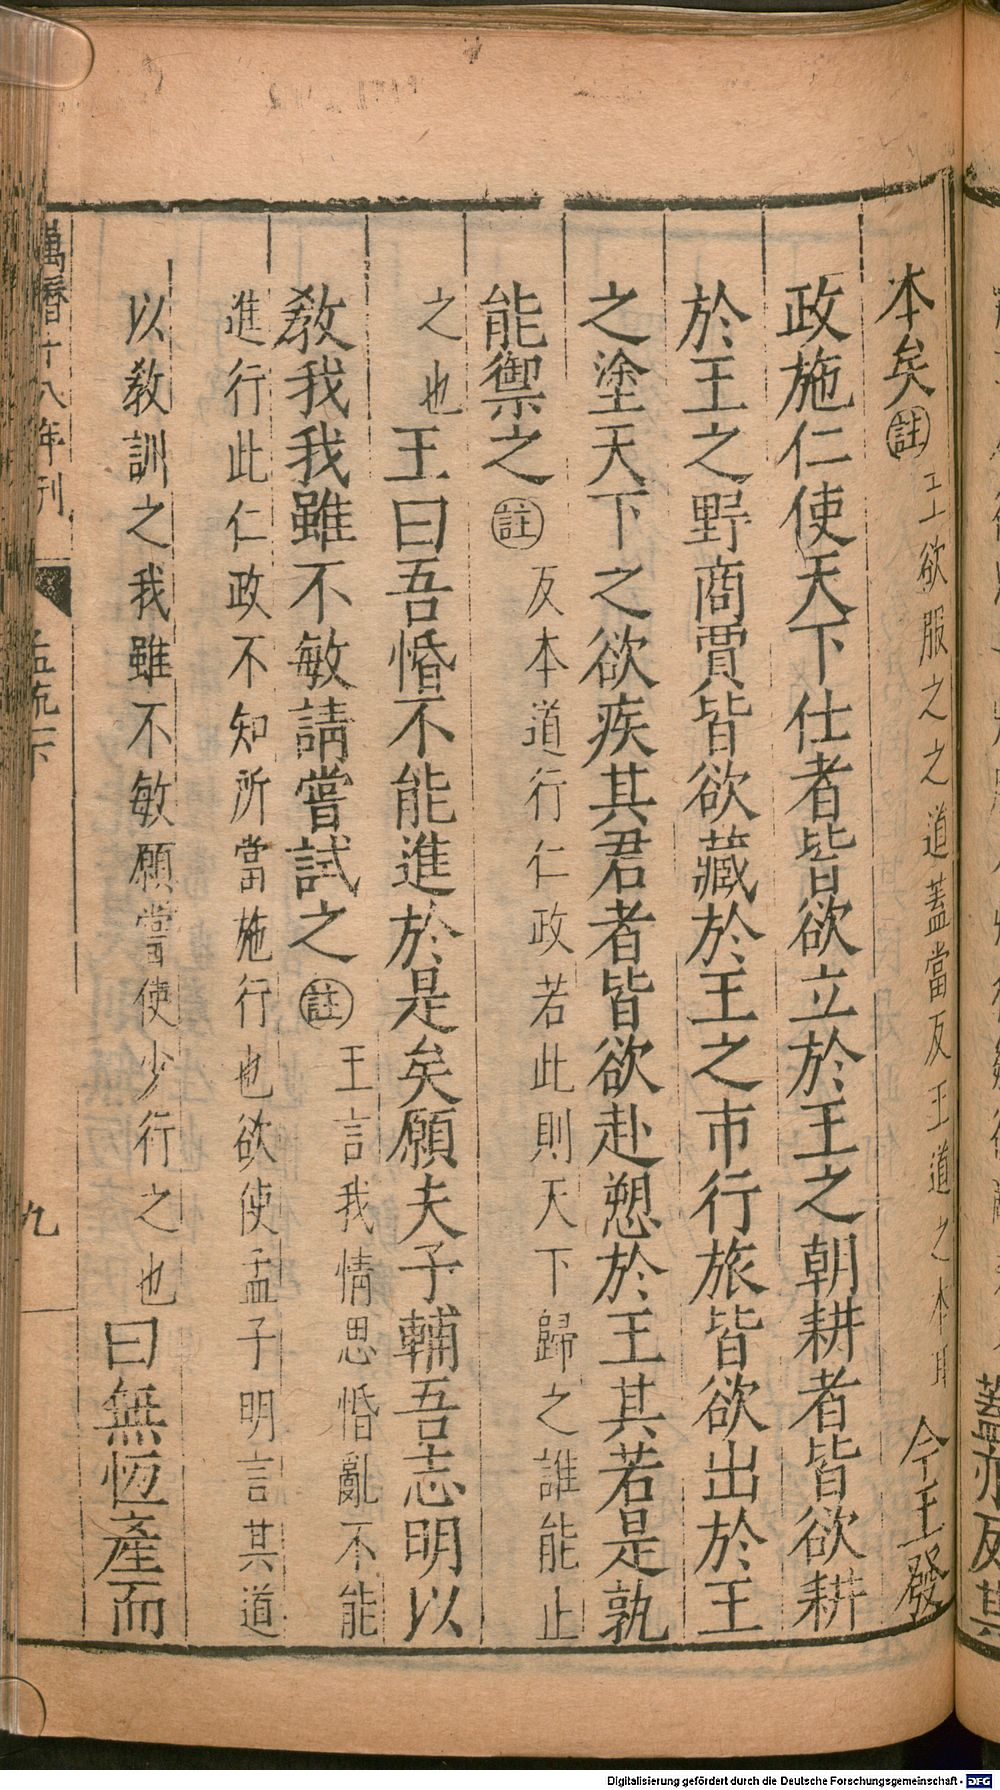 本矣註王欲服之之道蓋當反王道之本耳今王發
政施仁使天下仕者皆欲立於王之朝耕者皆欲耕
於王之野商賈皆欲藏於王之市行旅皆欲出於王
之塗天下之欲疾其君者皆欲赴愬於王其若是孰
能禦之註反本道行仁政若此則天下歸之誰能止
之也王曰吾惛不能進於是矣願夫子輔吾志明以
教我我雖不敏請嘗試之註王言我情思惛亂不能
進行此仁政不知所當施行也欲使孟子明言其道
以教訓之我雖不敏願嘗使少行之也曰無恆產而
萬曆十八年刊
孟䟽一下
九
蓋亦反其
Digitalisierung gefördert durch die Deutsche Forschungsgemeinschaft - DFG